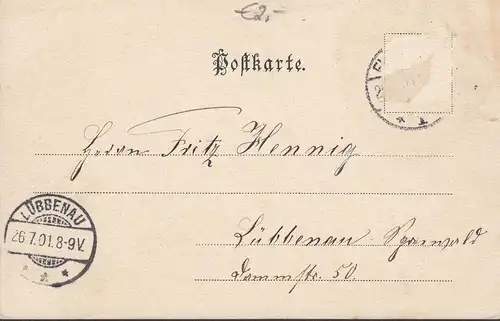 €2,-
Postkarte.
Herrn Fritz Hennig
LÜBBENAU
26.7.01.8-9V.
Lübbenau-Spreewald
Dammstr. 50.